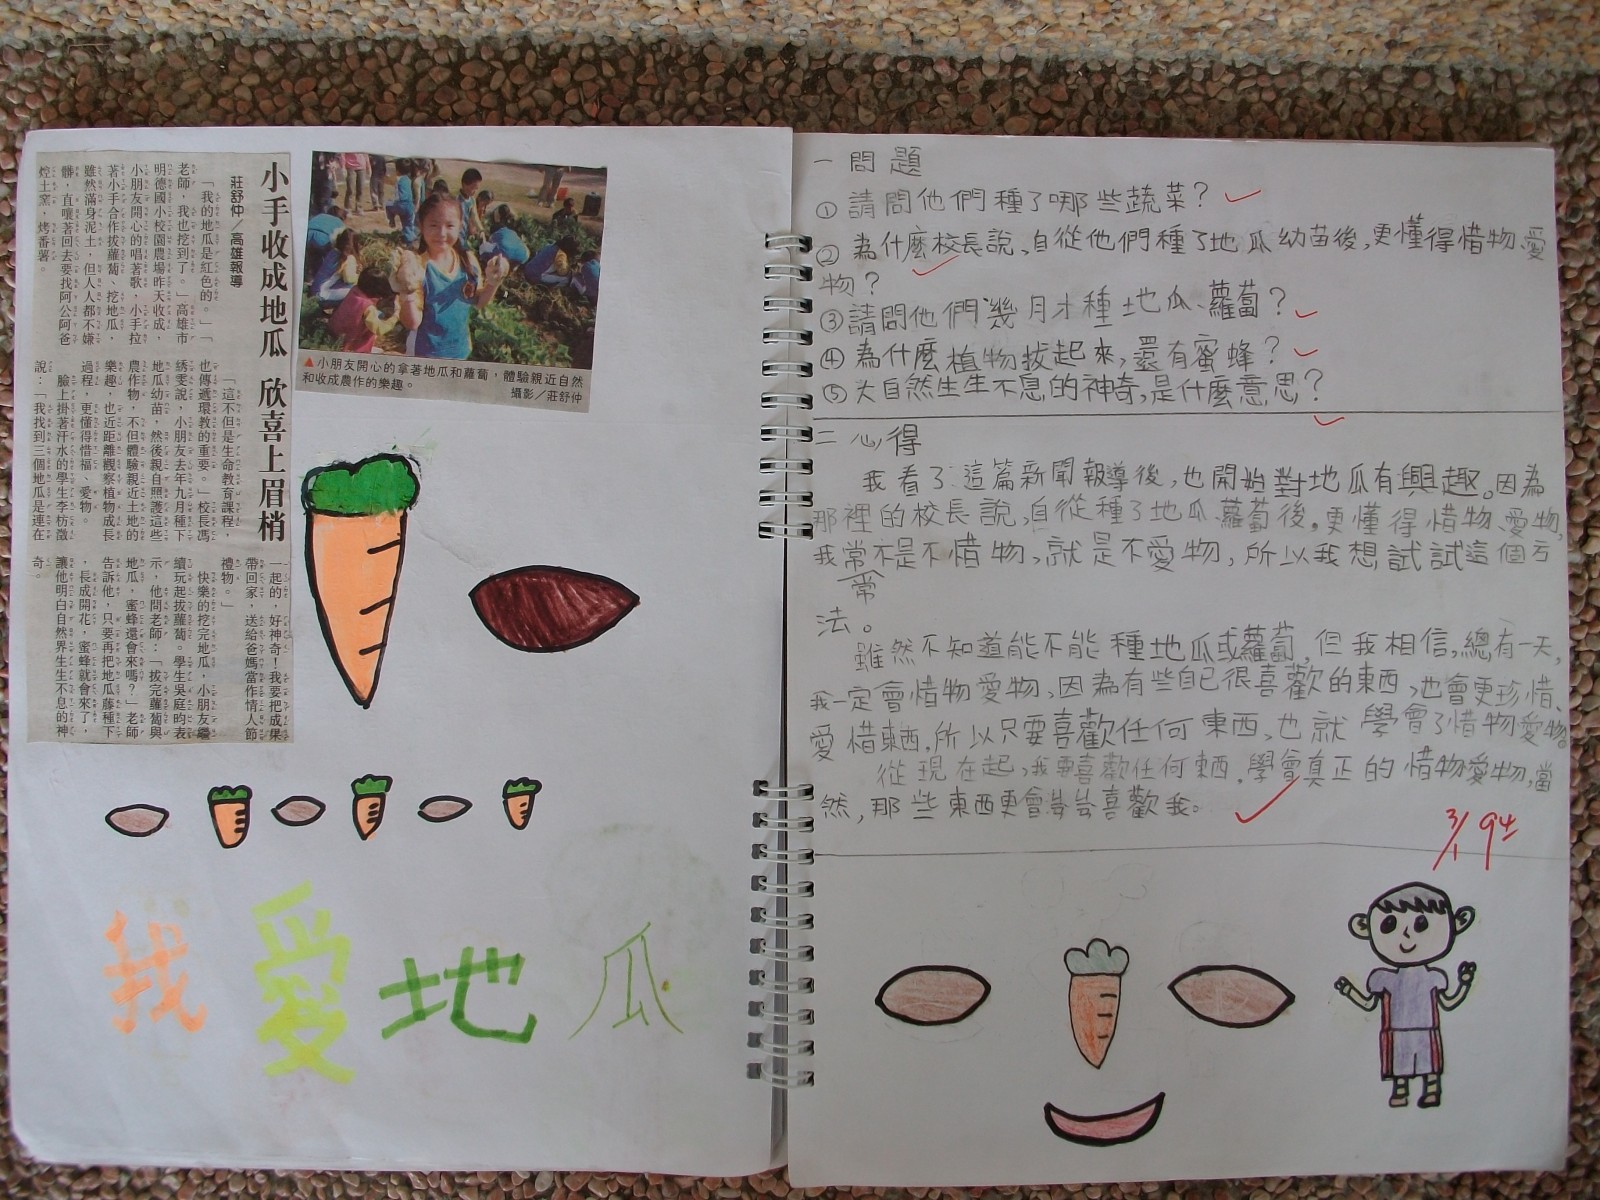 小手收成地瓜 欣喜上眉梢
莊舒仲／高雄報導
「我的地瓜是紅色的。」「
老師，我也挖到了。」高雄市
明德國小校園農場昨天收成，
小朋友開心的唱著歌，小手拉
著小手合作拔蘿蔔、挖地瓜，
雖然滿身泥土，但人人都不嫌
髒，直嚷著回去要找阿公阿爸
焢土窯，烤番薯。
「這不但是生命教育課程，
也傳遞環教的重要。」校長馮
綉雯說，小朋友去年九月種下
地瓜幼苗，然後親自照護這些
農作物，不但體驗親近土地的
樂趣，也近距離觀察植物成長
過程，更懂得惜福、愛物。
臉上掛著汗水的學生李枋澂
說：「我找到三個地瓜是連在
一起的，好神奇！我要把成果
帶回家，送給爸媽當作情人節
禮物。」
快樂的挖完地瓜，小朋友繼
續玩起拔蘿蔔。學生吳庭昀表
示，他問老師：「拔完蘿蔔與
地瓜，蜜蜂還會來嗎？」老師
告訴他，只要再把地瓜藤種下
，長成開花，蜜蜂就會來了，
讓他明白自然界生生不息的神
奇。
▲小朋友開心的拿著地瓜和蘿蔔，體驗親近自然
和收成農作的樂趣。 攝影／莊舒仲
我愛地瓜
一 問題
①請問他們種了哪些蔬菜？
②為什麼校長說、自從他們種了地瓜幼苗後，更懂得惜物、愛
物？
③請問他們幾月才種地瓜、蘿蔔？
④為什麼植物拔起來，還有蜜蜂？
⑤大自然生生不息的神奇，是什麼意思？
二 心得
我看了這篇新聞報導後，也開始對地瓜有興趣。因為
那裡的校長說，自從種了地瓜、蘿蔔後，更懂得惜物、愛物，
我常不是不惜物，就是不愛物，所以我想試試這個方
常
法。
雖然不知道能不能種地瓜或蘿蔔，但我相信，總有一天，
我一定會惜物愛物，因為有些自己很喜歡的東西，也會更珍惜、
愛惜東西，所以只要喜歡任何東西，也就學會了惜物愛物。
從現在起，我要喜歡任何東西，學會真正的惜物愛物，當
然，那些東西更會喜歡我。
3/1 94